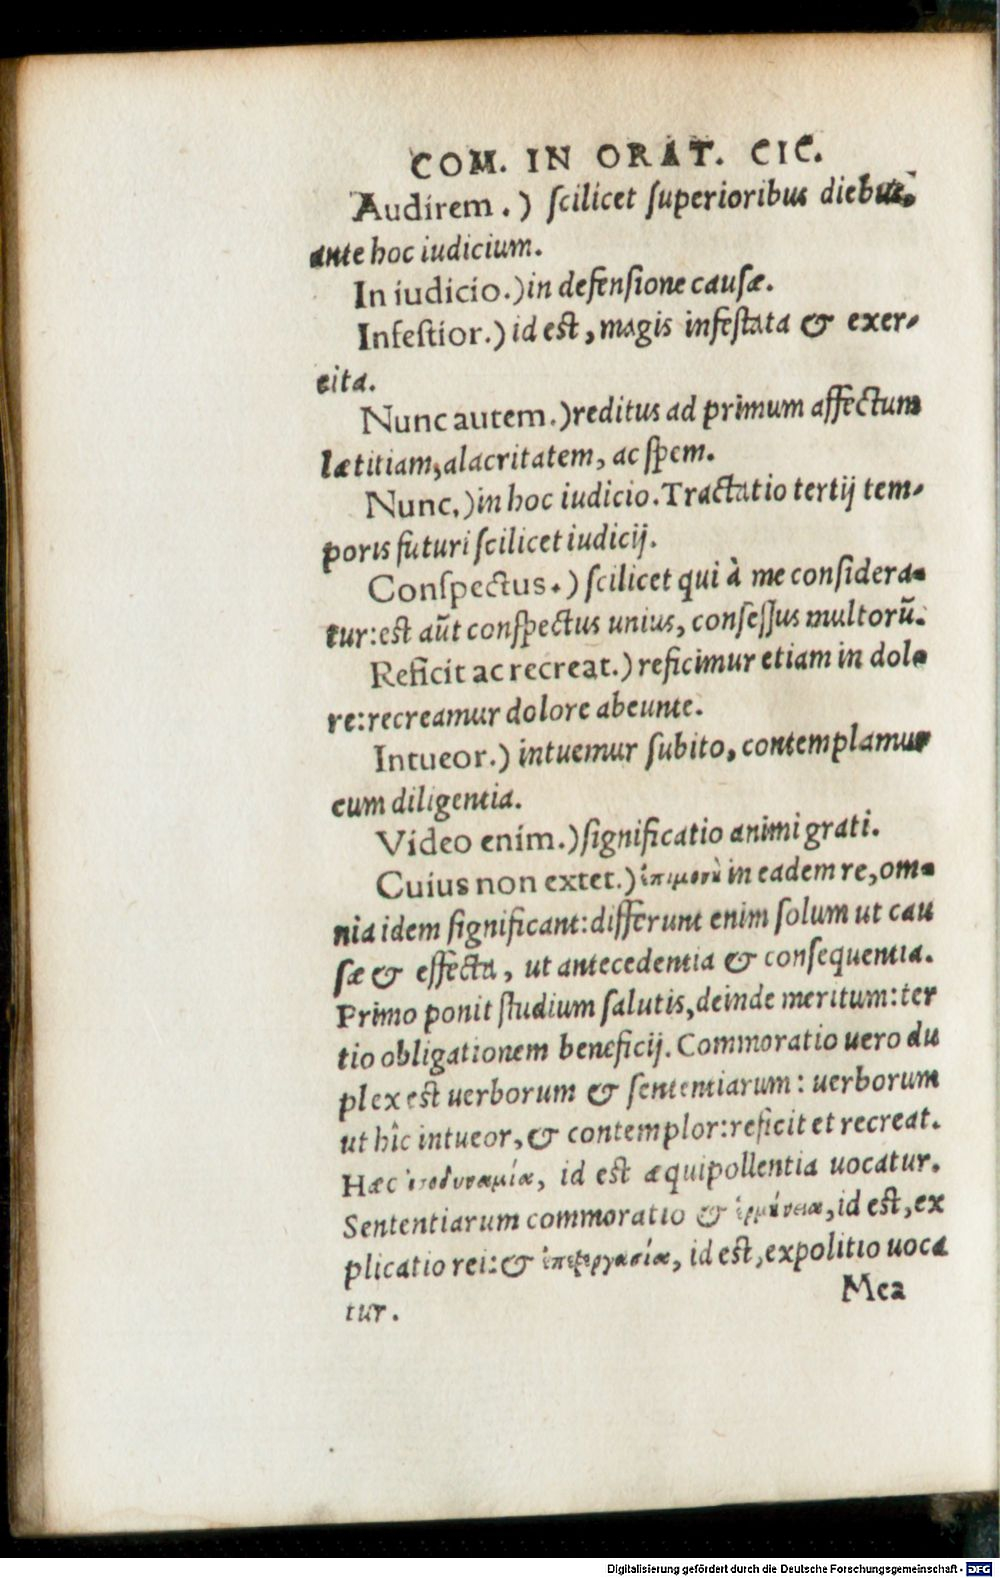 COM. IN ORAT. CIC.
Audirem.) ſcilicet ſuperioribus diebus,
ante hoc iudicium.
In iudicio.) in defenſione cauſæ.
Infeſtior.) id est, magis infeſtata & exer-
cita.
Nunc autem.) reditus ad primum affectum
lætitiam, alacritatem, ac ſpem.
Nunc.) in hoc iudicio. Tractatio tertij tem-
poris futuri ſcilicet iudicij.
Conſpectus.) ſcilicet qui à me conſidera-
tur: est aūt conſpectus unius, conſeſſus multorū.
Reficit ac recreat.) reficimur etiam in dolo
re: recreamur dolore abeunte.
Intueor.) intuemur ſubito, contemplamur
cum diligentia.
Video enim.) ſignificatio animi grati.
Cuius non extet.) ἐπιμονὴ in eadem re, om-
nia idem ſignificant: differunt enim ſolum ut cau
ſæ & effecta, ut antecedentia & conſequentia.
Primo ponit ſtudium ſalutis, deinde meritum: ter
tio obligationem beneficij. Commoratio uero du
plex est uerborum & ſententiarum: uerborum
ut hîc intueor, & contemplor: reficit et recreat.
Hæc ἰσοδυναμία, id est æquipollentia uocatur.
Sententiarum commoratio & ἑρμήνεια, id est, ex
plicatio rei: & ἐπεξεργασία, id est, expolitio uoca
tur.
Mea
Digitalisierung gefördert durch die Deutsche Forschungsgemeinschaft - DFG